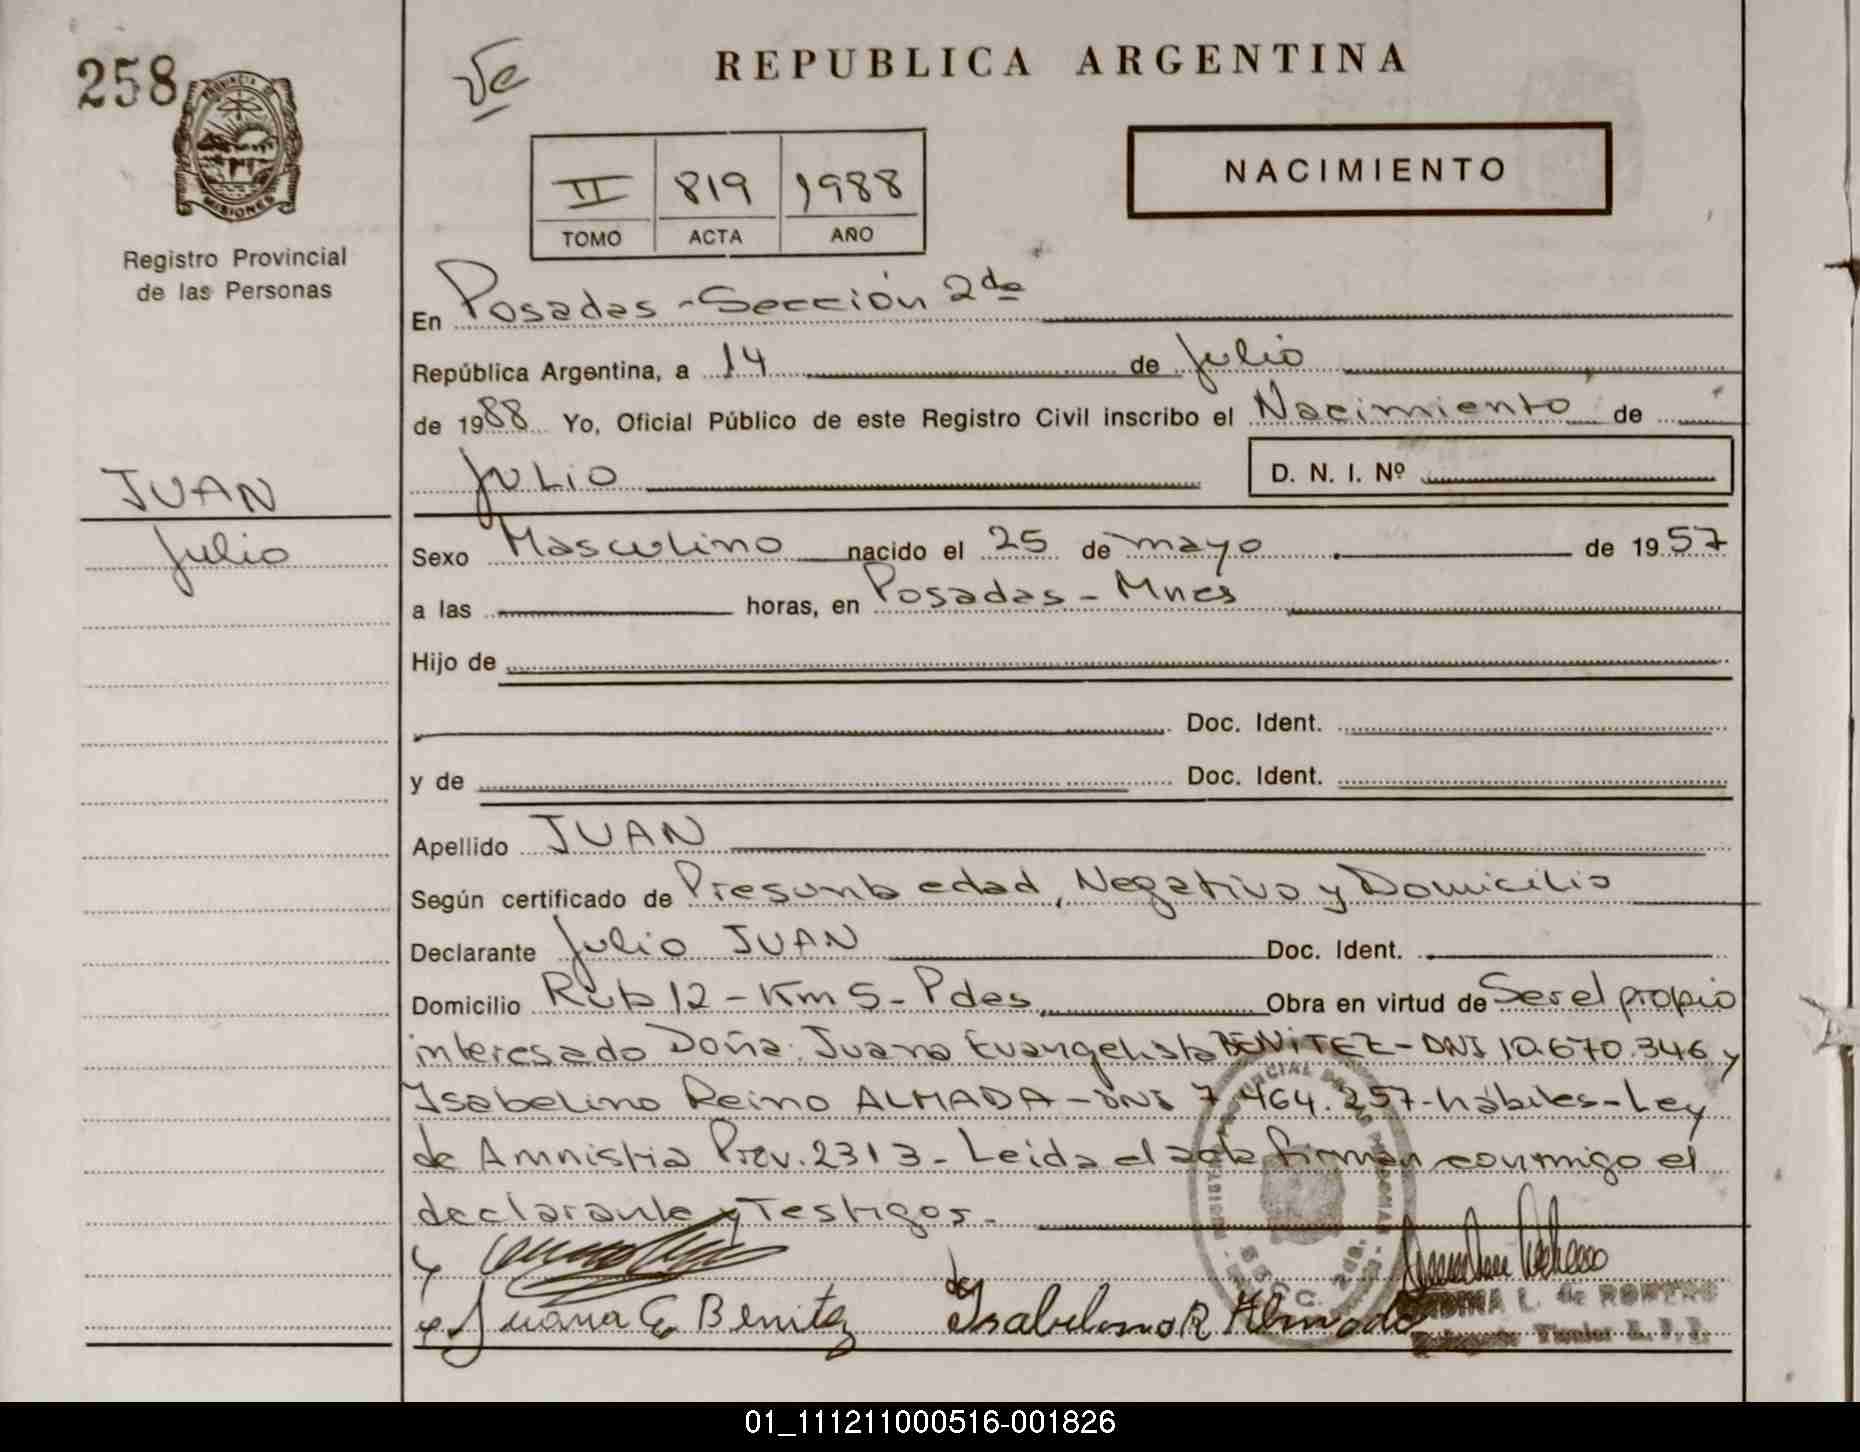 258
REPUBLICA ARGENTINA
PROVINCIA DE
MISIONES
Registro Provincial
de las Personas
II 819 1988
TOMO ACTA AÑO
NACIMIENTO
En Posadas - Sección 2da
República Argentina, a 14 de Julio
de 1988 Yo, Oficial Público de este Registro Civil inscribo el Nacimiento de
JULIO D. N. I. Nº
JUAN
Julio
Sexo Masculino nacido el 25 de mayo de 1957
a las horas, en Posadas - Mnes
Hijo de
Doc. Ident.
y de Doc. Ident.
Apellido JUAN
Según certificado de Presunta edad, Negativo y Domicilio
Declarante Julio JUAN Doc. Ident.
Domicilio Ruta 12 - Km 5 - Pdas Obra en virtud de Ser el propio
interesado Doña: Juana Evangelista BENITEZ - DNI 10.670.346 y
Isabelino Reino ALMADA - DNI 7.464.257 - hábiles - Ley
de Amnistia Prov. 2313 - Leida el acta firman conmigo el
declarante y Testigos.
Juana E Benitez Isabelino R Almada
L. de ROMERO